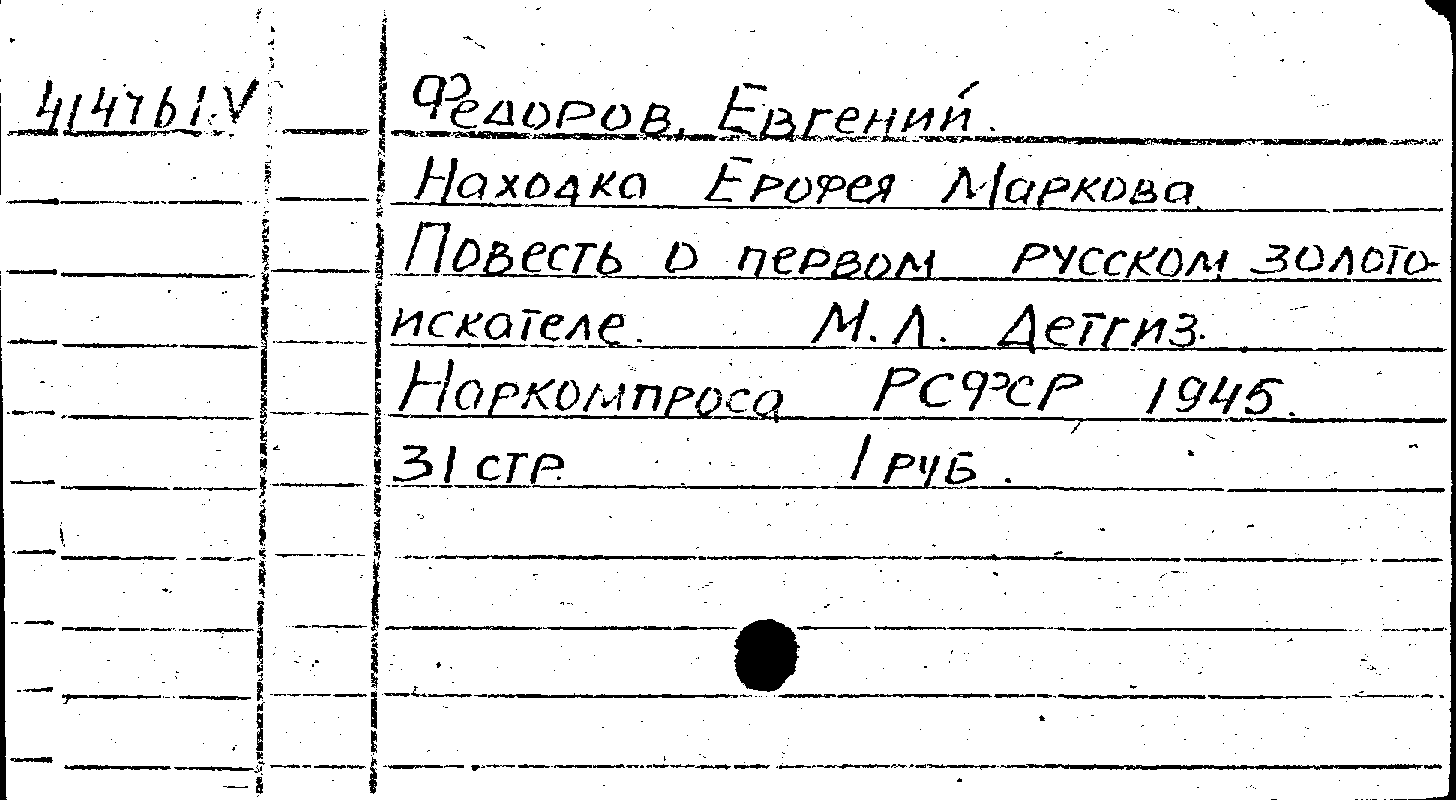 414761.V Федоров, Евгений.
Находка Ерофея Маркова
Повесть о первом русском золото-
искателе. М.Л. Детгиз.
Наркомпроса РСФСР 1945.
31 стр. 1 руб.